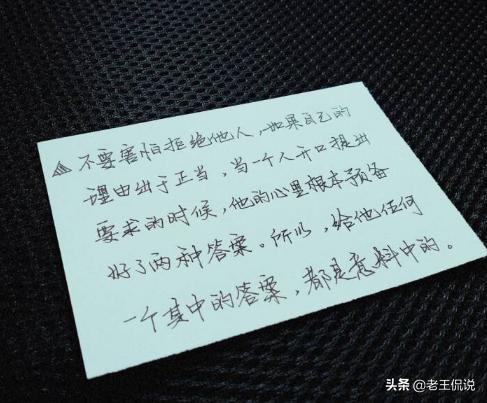 不要害怕拒绝他人,如果自己的
理由出于正当,当一个人开口提出
要求的时候,他的心里根本预备
好了两种答案。所以,给他任何
一个其中的答案,都是意料中的。
头条 @老王侃说